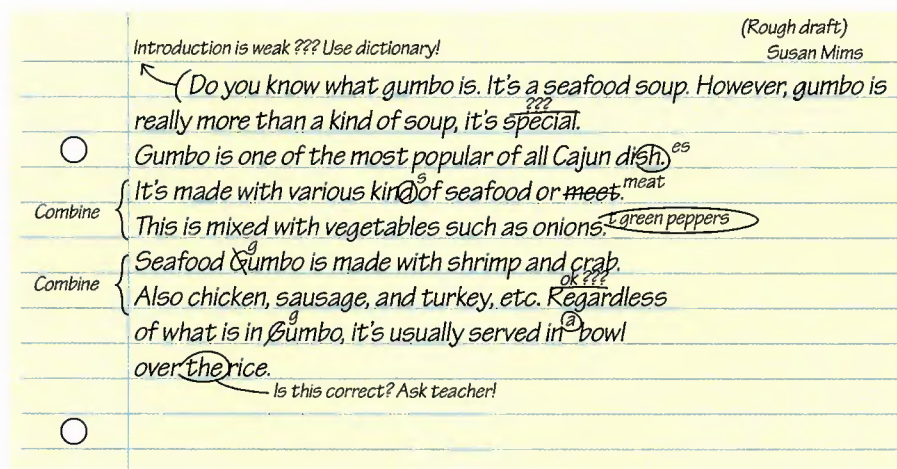 (Rough draft)
Introduction is weak ??? Use dictionary!
Susan Mims
(Do you know what gumbo is. It's a seafood soup. However, gumbo is
???
really more than a kind of soup, it's special.
Gumbo is one of the most popular of all Cajun dish. es
It's made with various kind s of seafood or meet. meat
Combine
This is mixed with vegetables such as onions. + green peppers
Seafood Gumbo g is made with shrimp and crab.
Combine
ok ???
Also chicken, sausage, and turkey, etc. Regardless
of what is in Gumbo g, it's usually served in a bowl
over the rice.
Is this correct? Ask teacher!